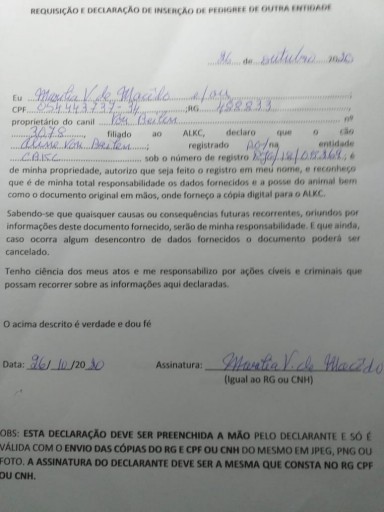 REQUISIÇÃO E DECLARAÇÃO DE INSERÇÃO DE PEDIGREE DE OUTRA ENTIDADE
26 de outubro 2020
Eu Marilia V. de Macêdo e/ou
CPF 054443737-34 ;RG 488833
proprietário do canil Von Beiten nº
3078, filiado ao ALKC, declaro que o cão
Von Beiten; registrado no/na entidade
CBKC sob o número de registro, é
de minha propriedade, autorizo que seja feito o registro em meu nome, e reconheço
que é de minha total responsabilidade os dados fornecidos e a posse do animal bem
como o documento original em mãos, onde forneço a cópia digital para o ALKC.
Sabendo-se que quaisquer causas ou consequências futuras recorrentes, oriundos por
informações deste documento fornecido, serão de minha responsabilidade. E que ainda,
caso ocorra algum desencontro de dados fornecidos o documento poderá ser
cancelado.
Tenho ciência dos meus atos e me responsabilizo por ações cíveis e criminais que
possam recorrer sobre as informações aqui declaradas.
O acima descrito é verdade e dou fé
Data: 26/10/2020 Assinatura: Marilia V. de Macêdo
(Igual ao RG ou CNH)
OBS: ESTA DECLARAÇÃO DEVE SER PREENCHIDA A MÃO PELO DECLARANTE E SÓ É
VÁLIDA COM O ENVIO DAS CÓPIAS DO RG E CPF OU CNH DO MESMO EM JPEG, PNG OU
FOTO. A ASSINATURA DO DECLARANTE DEVE SER A MESMA QUE CONSTA NO RG CPF
OU CNH.